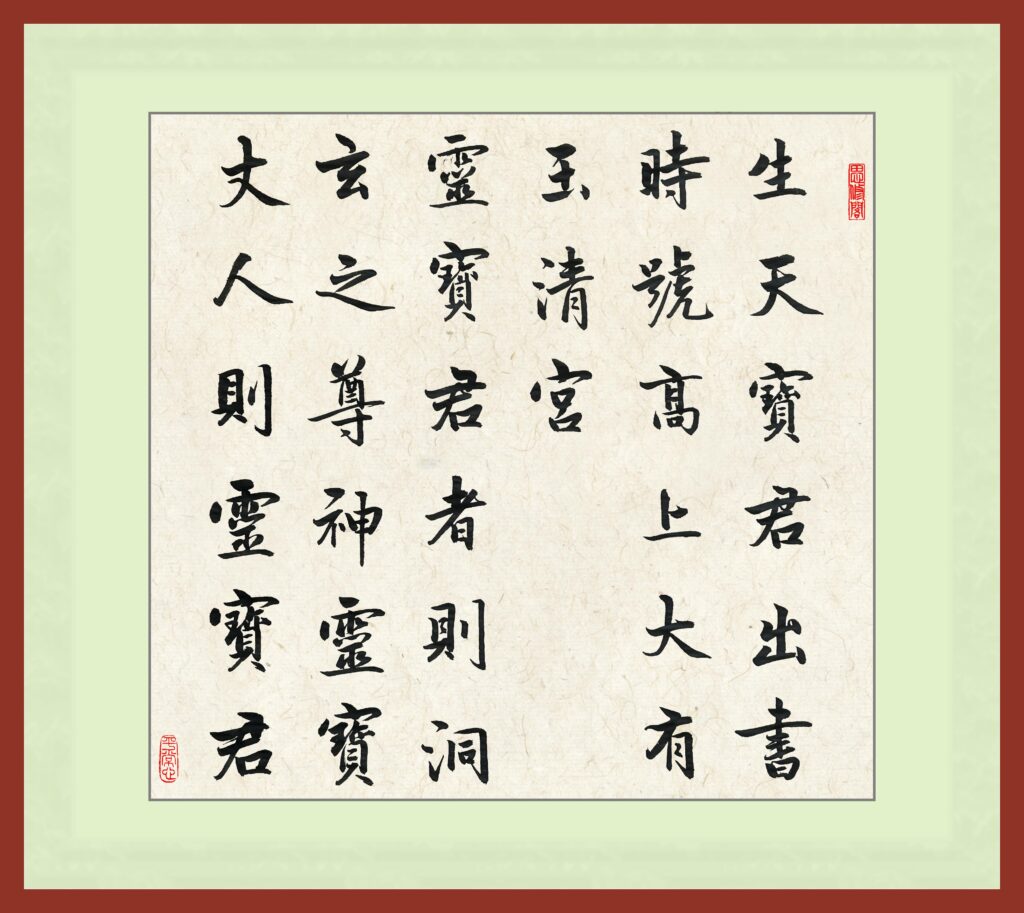 思修閣
生天寶君出書
時號高上大有
玉清宮
靈寶君者則洞
玄之尊神靈寶
丈人則靈寶君
平常心